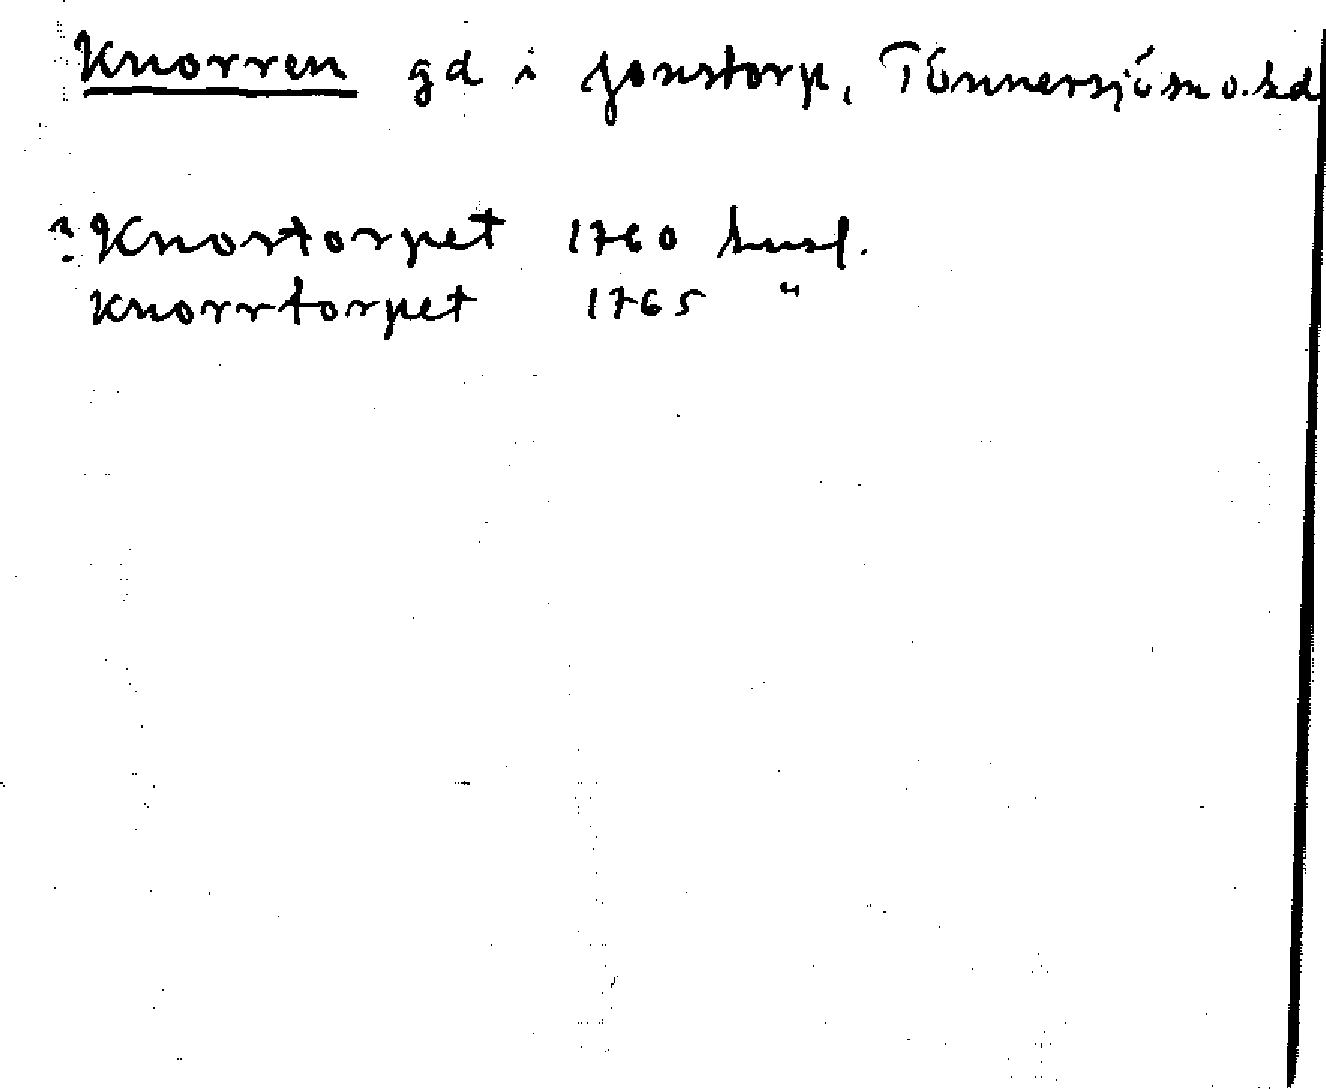 Knorren gd i Jonstorp, Tönnersjö sn o. hd
? Knortorpet 1760 husf.
Knorrtorpet 1765 "